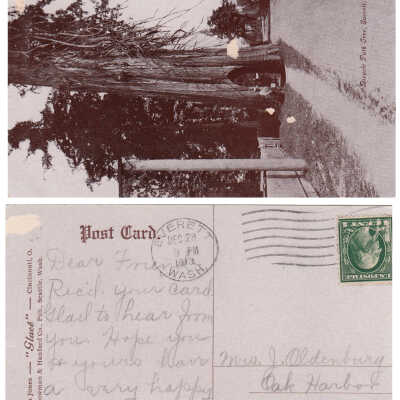 Bicycle Path Tree, Everett
Post Card.
EVERETT
DEC 28
9 PM
1913
WASH.
Dear Friend
Rec'd your card
Glad to hear from
you Hope you
& yours have
a very happy
Mrs. J. Oldenburg
Oak Harbor
Jones — "Glaco" — Cincinnati, O.
Bowman & Hanford Co., Pub., Seattle, Wash.